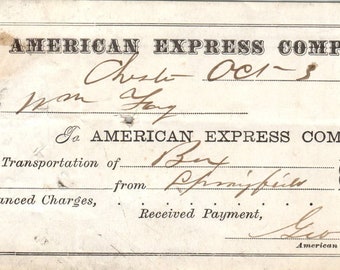 AMERICAN EXPRESS COMP
Chester Oct 3
Wm Fay
To AMERICAN EXPRESS COM
Transportation of Box
from Springfield
anced Charges,
Received Payment,
Geo
American